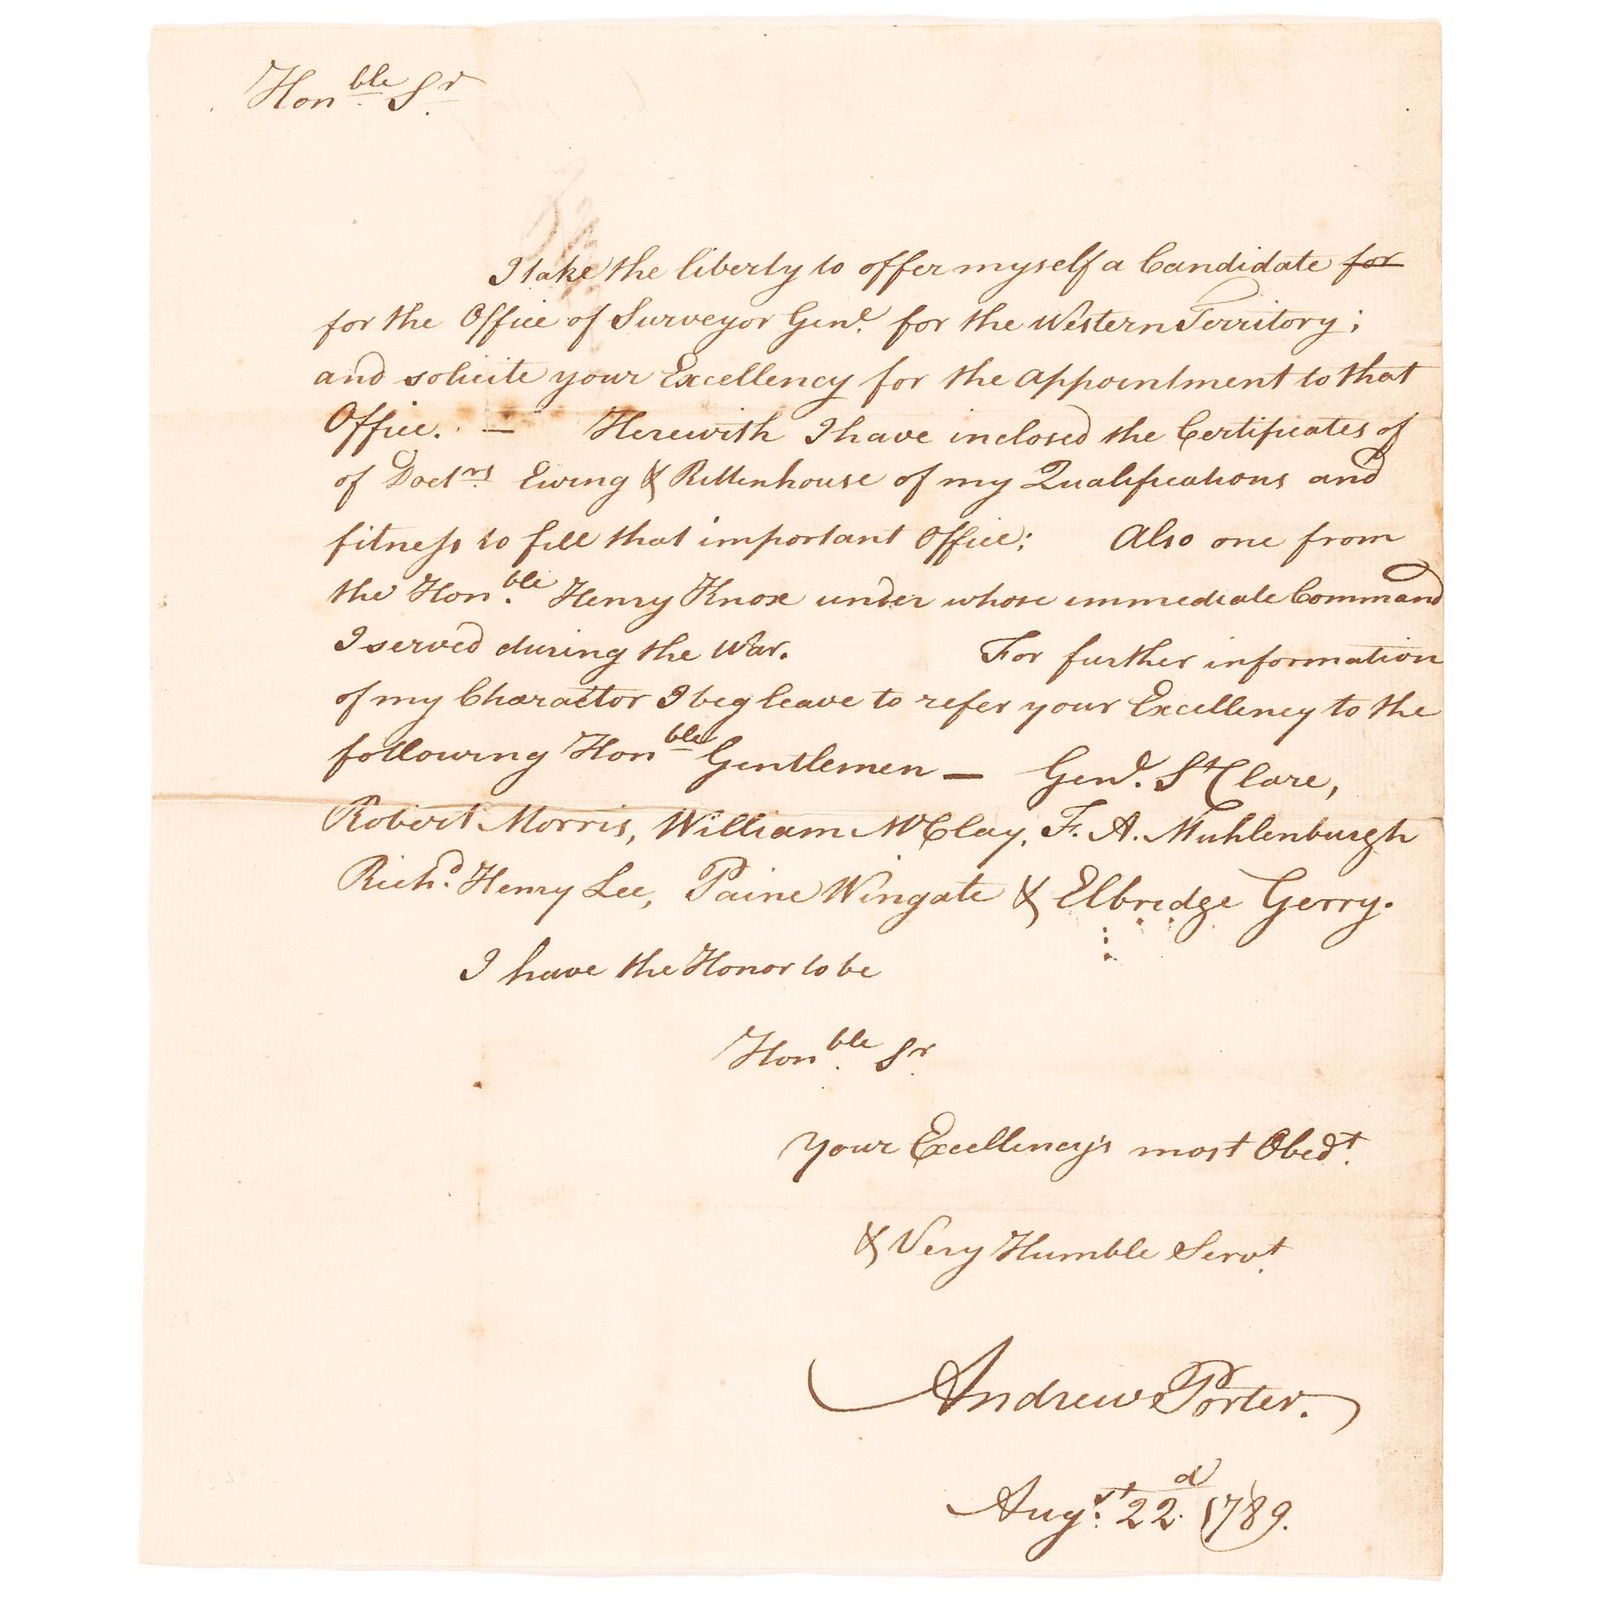 Honble Sr
I take the liberty to offer myself a Candidate for
for the Office of Surveyor Genl. for the Western Territory;
and solicite your Excellency for the appointment to that
Office. — Herewith I have inclosed the Certificates of
of Doctrs. Ewing & Rittenhouse of my Qualifications and
fitness to fill that important Office: Also one from
the Honble. Henry Knox under whose immediate Command
I served during the War. For further information
of my Charactor I beg leave to refer your Excellency to the
following Honble Gentlemen — Genl. St Clare,
Robert Morris, William McClay, F. A. Muhlenburgh
Richd. Henry Lee, Paine Wingate & Elbridge Gerry.
I have the Honor to be
Honble. Sr.
Your Excellency's most Obedt.
& Very Humble Servt.
Andrew Porter.
Augst. 22d. 1789.